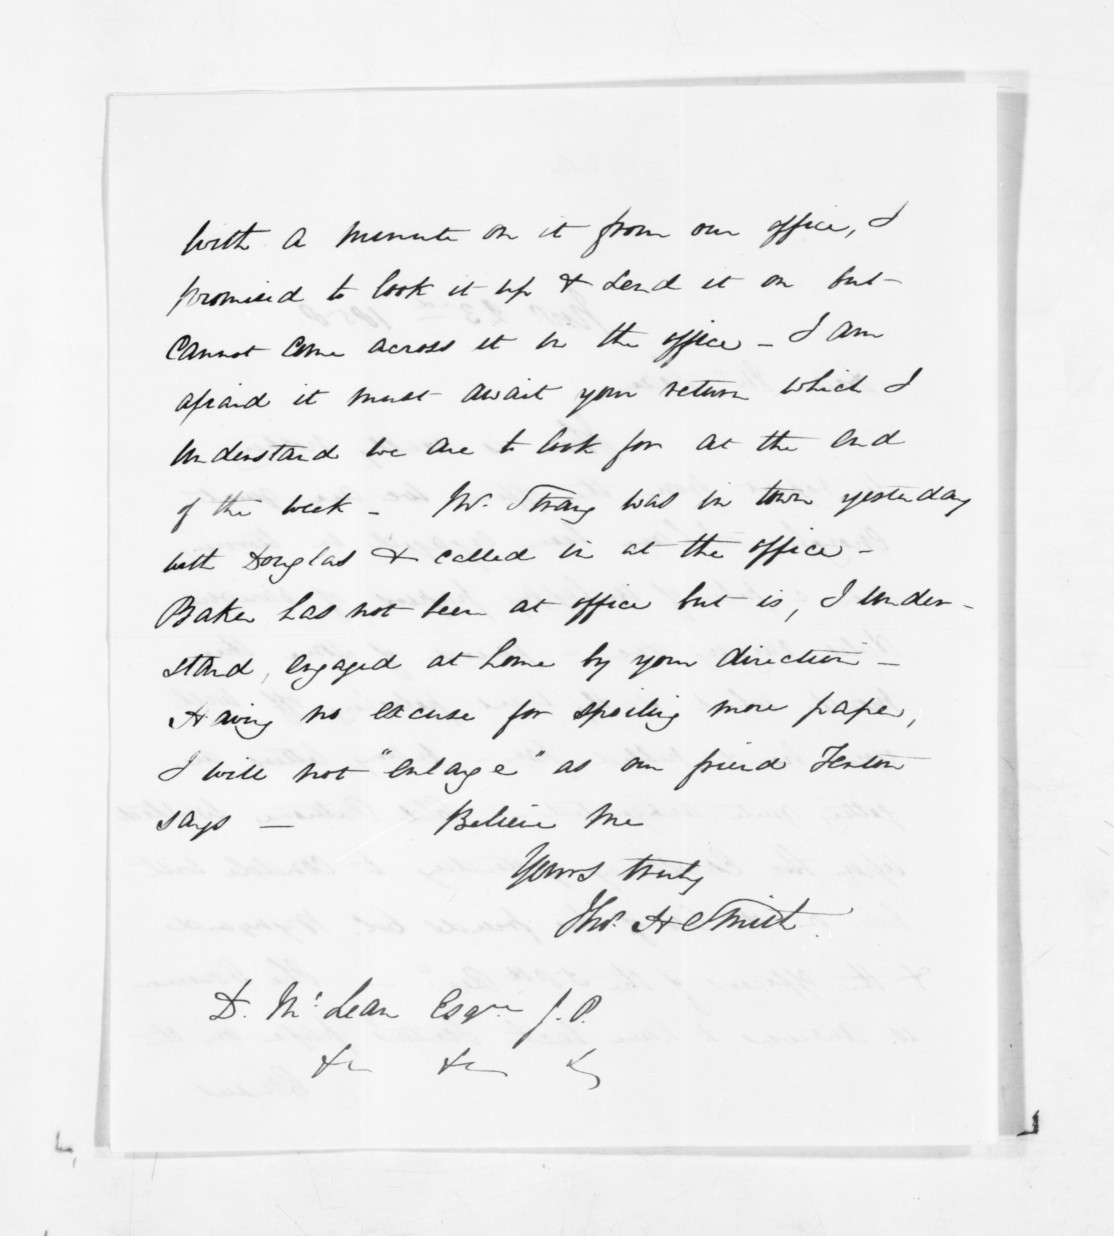 with a minute on it from our office, I
promised to look it up & send it on but -
cannot come across it in the office - I am
afraid it must await your return which I
understand we are to look for at the end
of the week - Mr. Strang was in town yesterday
with Douglas & called in at the office -
Baker has not been at office but is, I under-
stand, engaged at home by your direction -
Having no excuse for spoiling more paper,
I will not "enlarge" as our friend Fenton
says - Believe me
Yours truly
Thos. H Smith.
D. McLean Esqre. J.P.
&c &c &c